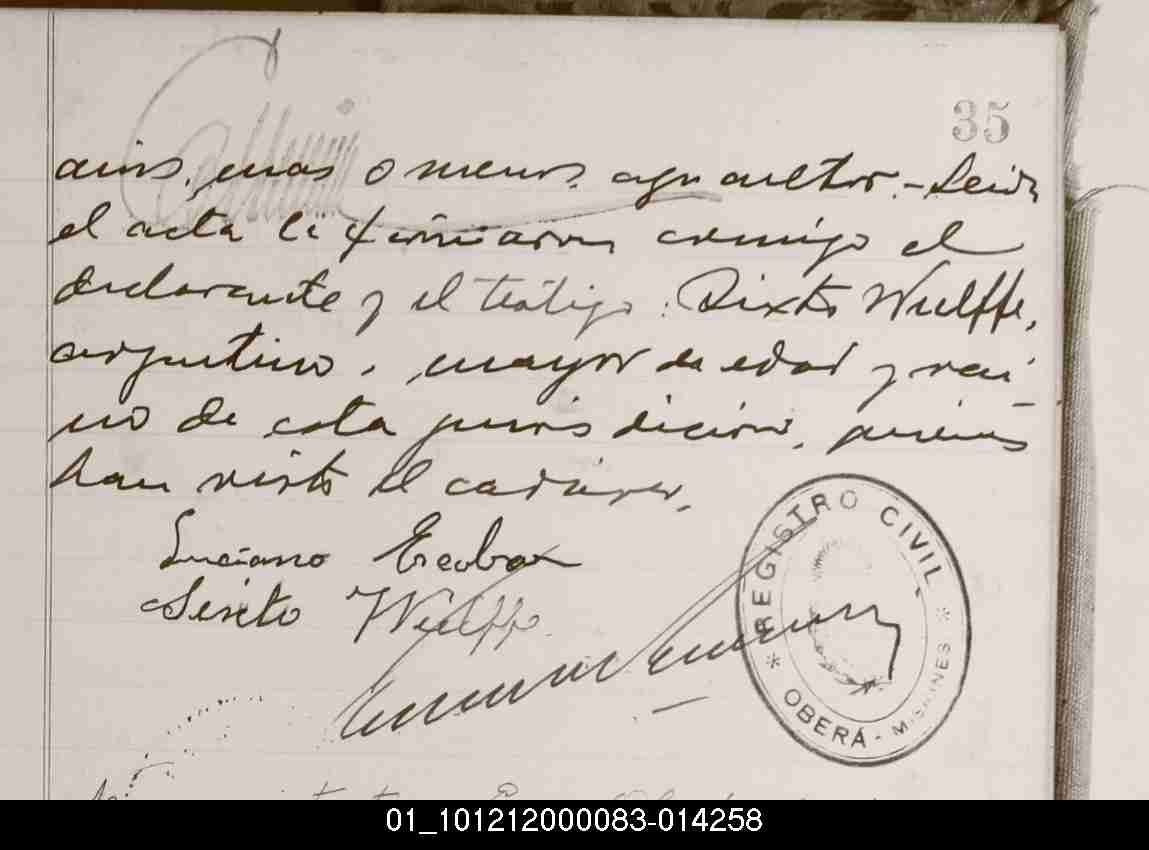 35
años, mas o menos, agricultor.- Leida
el acta la firmaron conmigo el
declarante y el testigo: Sixto Wulffe,
argentino, mayor de edad y veci-
no de esta jurisdicion, quienes
han visto el cadaver,
Luciano Escobar
Sixto Wulffe
REGISTRO CIVIL
* OBERÁ - MISIONES *
01_101212000083-014258